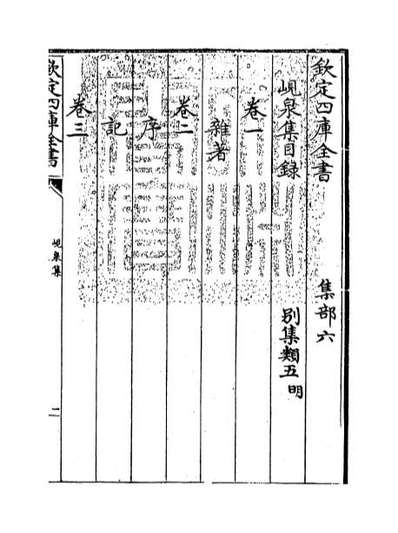 欽定四庫全書　集部六
峴泉集目錄　別集類五明
卷一
雜著
卷二
序
記
卷三
欽定四庫全書
峴泉集